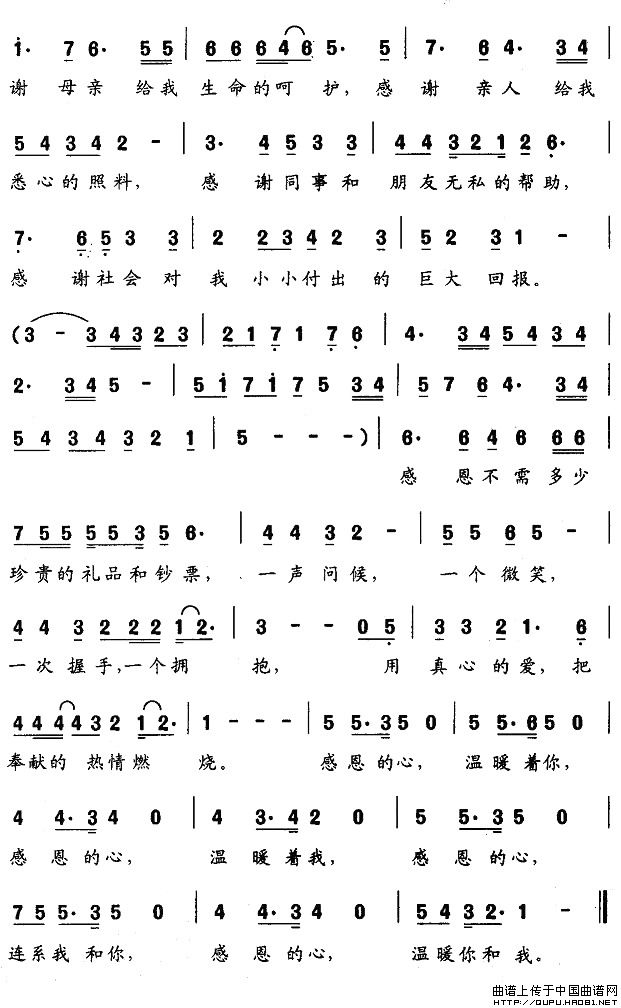 1· 7 6· 5 5 | 6 6 6 4 6 5· 5 | 7· 6 4· 3 4 |
谢 母 亲 给 我 生 命 的 呵 护, 感 谢 亲 人 给 我
5 4 3 4 2 - | 3· 4 5 3 3 | 4 4 3 2 1 2 6· |
悉 心 的 照 料, 感 谢 同 事 和 朋 友 无 私 的 帮 助,
7· 6 5 3 3 | 2 2 3 4 2 3 | 5 2 3 1 - |
感 谢 社 会 对 我 小 小 付 出 的 巨 大 回 报。
(3 - 3 4 3 2 3 | 2 1 7 1 7 6 | 4· 3 4 5 4 3 4 |
2· 3 4 5 - | 5 1 7 1 7 5 3 4 | 5 7 6 4· 3 4 |
5 4 3 4 3 2 1 | 5 - - -) | 6· 6 4 6 6 6 |
感 恩 不 需 多 少
7 5 5 5 5 3 5 6· | 4 4 3 2 - | 5 5 6 5 - |
珍 贵 的 礼 品 和 钞 票, 一 声 问 候, 一 个 微 笑,
4 4 3 2 2 2 1 2· | 3 - - 0 5 | 3 3 2 1· 6 |
一 次 握 手, 一 个 拥 抱, 用 真 心 的 爱, 把
4 4 4 4 3 2 1 2· | 1 - - - | 5 5· 3 5 0 | 5 5· 6 5 0 |
奉 献 的 热 情 燃 烧。 感 恩 的 心, 温 暖 着 你,
4 4· 3 4 0 | 4 3· 4 2 0 | 5 5· 3 5 0 |
感 恩 的 心, 温 暖 着 我, 感 恩 的 心,
7 5 5· 3 5 0 | 4 4· 3 4 0 | 5 4 3 2· 1 - ‖
连 系 我 和 你, 感 恩 的 心, 温 暖 你 和 我。
曲谱上传于中国曲谱网
HTTP://QUPU.HAO81.NET